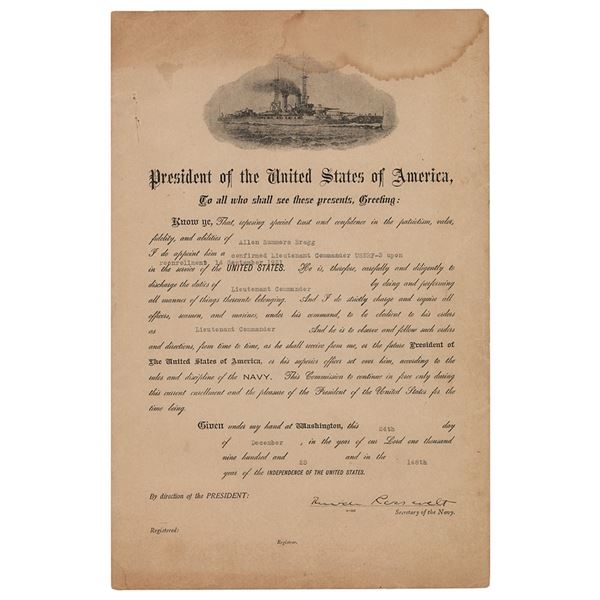 President of the United States of America,
To all who shall see these presents, Greeting:
Know ye, That, reposing special trust and confidence in the patriotism, valor,
fidelity, and abilities of Allen Summers Bragg
I do appoint him a confirmed Lieutenant Commander upon
reenrollment, 14 September 1921
in the service of the UNITED STATES. He is, therefore, carefully and diligently to
discharge the duties of Lieutenant Commander by doing and performing
all manner of things thereunto belonging. And I do strictly charge and require all
officers, seamen, and marines, under his command, to be obedient to his orders
as Lieutenant Commander And he is to observe and follow such orders
and directions, from time to time, as he shall receive from me, or the future President of
The United States of America, or his superior officer set over him, according to the
rules and discipline of the NAVY. This Commission to continue in force only during
this current enrollment and the pleasure of the President of the United States for the
time being.
Given under my hand at Washington, this 24th day
of December, in the year of our Lord one thousand
nine hundred and 23 and in the 148th
year of the INDEPENDENCE OF THE UNITED STATES.
By direction of the PRESIDENT:
Roosevelt
Secretary of the Navy.
Registered:
Registrar.